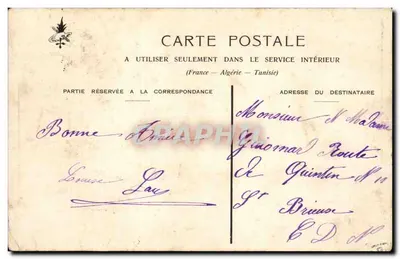 CARTE POSTALE
A UTILISER SEULEMENT DANS LE SERVICE INTÉRIEUR
(France - Algérie - Tunisie)
PARTIE RÉSERVÉE A LA CORRESPONDANCE
ADRESSE DU DESTINATAIRE
Bonne Année
Louise
Monsieur & Madame
Route
de Quintin N 10
St Brieuc
C D N